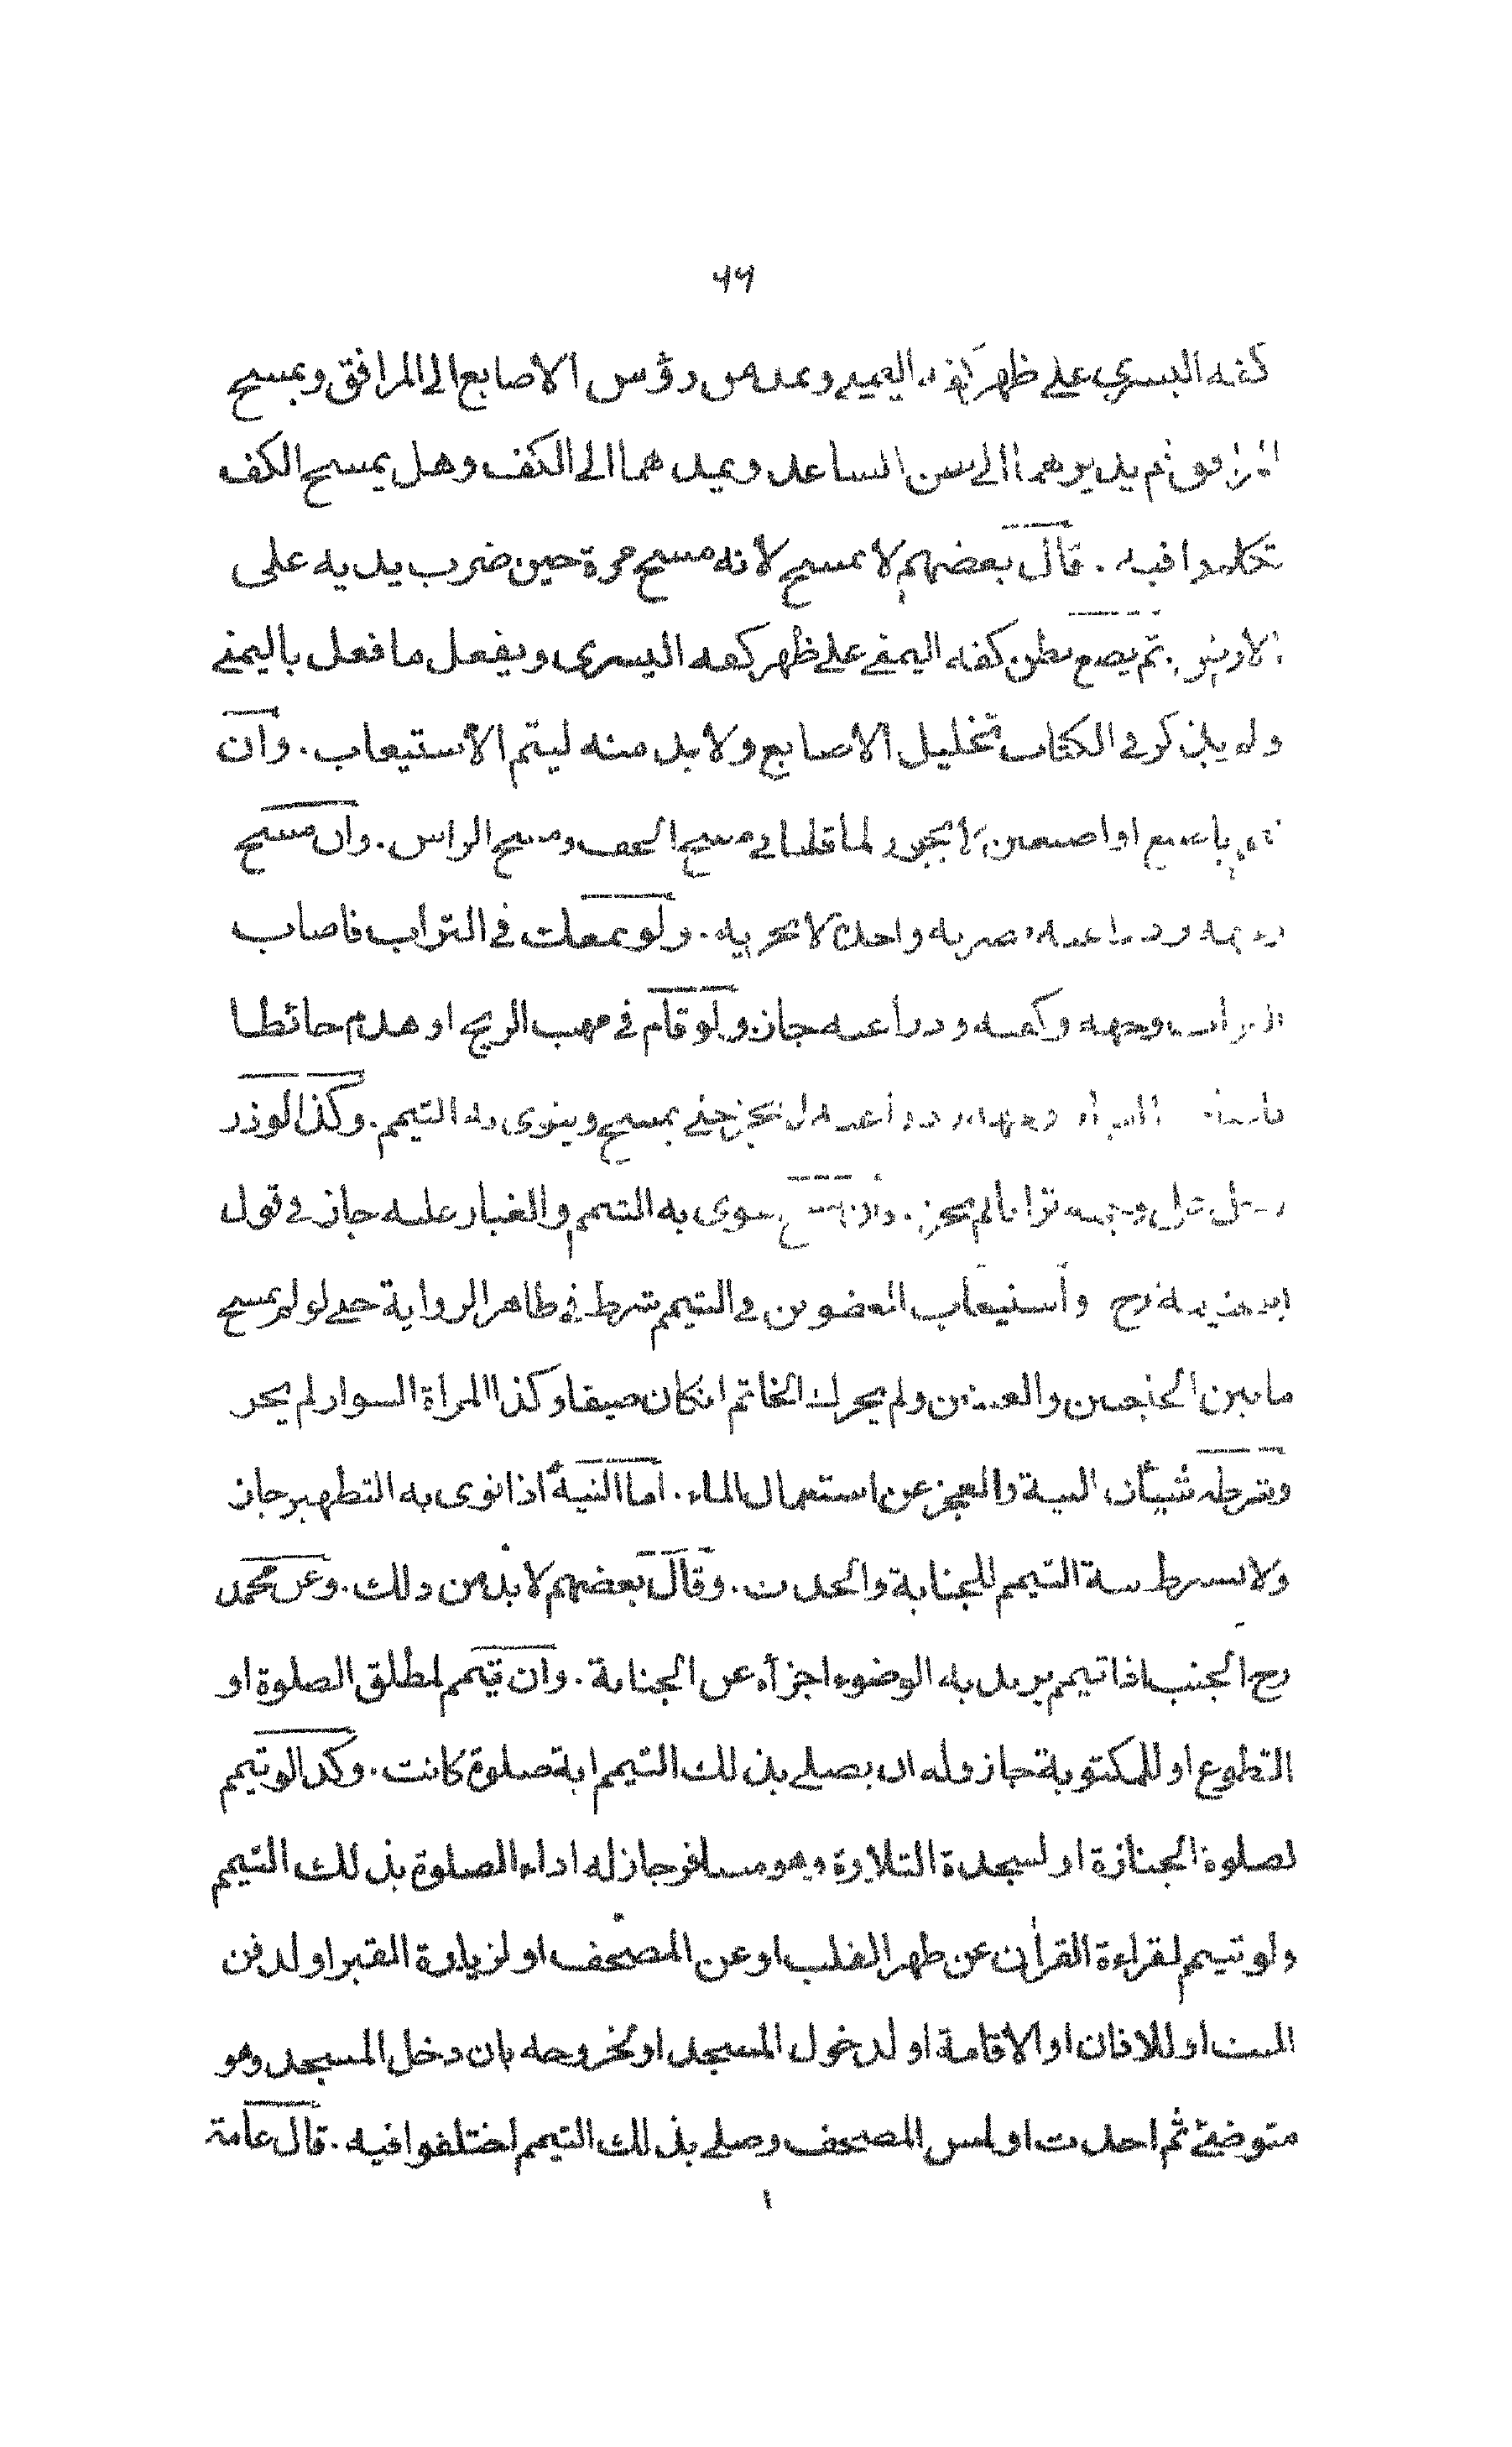 ٦٦
كفه اليسرى على ظهر كفه اليمنى ويمد من رؤس الاصابع الى المرافق ويمسح
المرافق ثم يديرهما الى بطن الساعد ويمدهما الى الكف وهل يمسح الكف
تكلموا فيه . قال بعضهم لا يمسح لانه مسح مرة حين ضرب يديه على
الارض . ثم يضع بطن كفه اليمنى على ظهر كفه اليسرى ويفعل ما فعل باليمنى
ولم يذكر فى الكتاب تخليل الاصابع ولا بد منه ليتم الاستيعاب . وان
باصبع او اصبعين لا يجوز لما قلنا فى مسح الخف ومسح الراس . وان مسح
وجهه وذراعيه بضربة واحدة لا يجزيه . ولو تمعك فى التراب فاصاب
التراب وجهه وكفيه وذراعيه جاز ولو قام فى مهب الريح او هدم حائطا
فاصاب الغبار وجهه وذراعيه لم يجز حتى يمسح وينوى به التيمم . وكذا لو ذر
رجل على وجهه ترابا لم يجز . وان مسح ينوى به التيمم والغبار عليه جاز فى قول
ابى حنيفة رح واستيعاب العضوين فى التيمم شرط فى ظاهر الرواية حتى لو لم يمسح
ما بين الحاجبين والعينين ولم يحرك الخاتم ان كان ضيقا وكذا المرأة السوار لم يجز
وشرطه شيئان النية والعجز عن استعمال الماء . اما النية اذا نوى به التطهير جاز
ولا يشترط نية التيمم للجنابة والحدث . وقال بعضهم لا بد من ذلك . وعن محمد
رح الجنب اذا تيمم يريد به الوضوء اجزأه عن الجنابة . وان تيمم لمطلق الصلوة او
التطوع او للمكتوبة جاز وله ان يصلى بذلك التيمم اية صلوة كانت . وكذا لو تيمم
لصلوة الجنازة او لسجدة التلاوة وهو مسافر جاز له اداء الصلوة بذلك التيمم
ولو تيمم لقراءة القرآن عن ظهر القلب او عن المصحف او لزيارة القبر او لدفن
الميت او للاذان او الاقامة او لدخول المسجد او لخروجه بان دخل المسجد وهو
متوضئ ثم احدث او لمس المصحف وصلى بذلك التيمم اختلفوا فيه . قال عامة